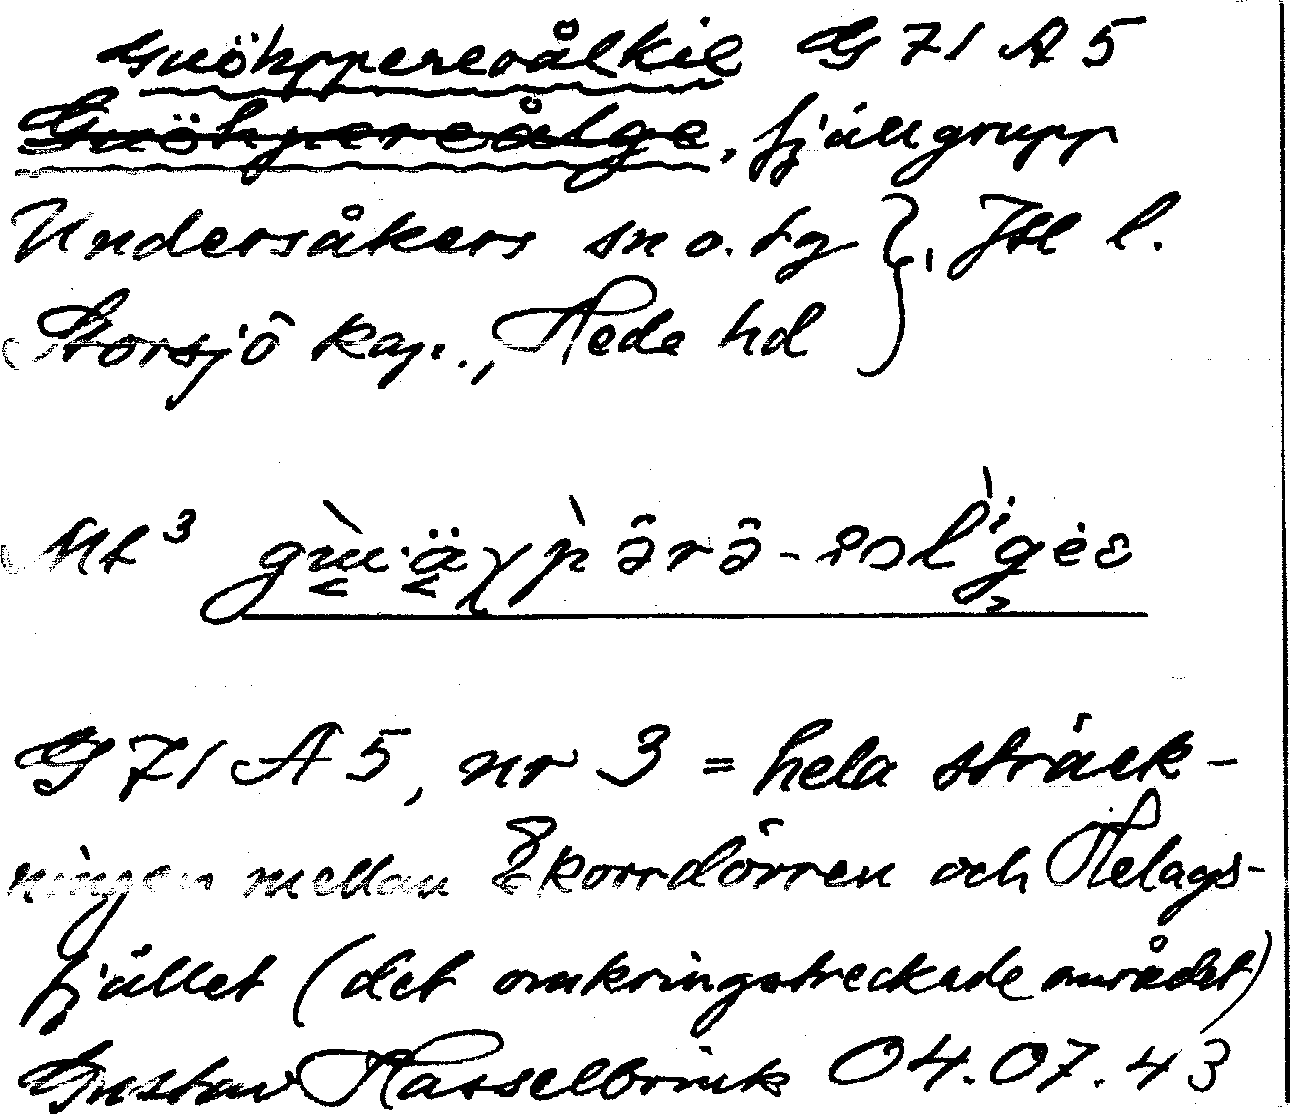 Guöhpperevålkie G 71 A 5
Guöhpereålge, fjällgrupp
Undersåkers sn o. tg }, Jtl l.
Storsjö kap., Hede hd
Mt³
G 71 A 5, nr 3 = hela sträck-
ningen mellan Ekorrdörren och Helags-
fjället (det omkringstreckade området)
Gustav Hasselbrink 04.07.43